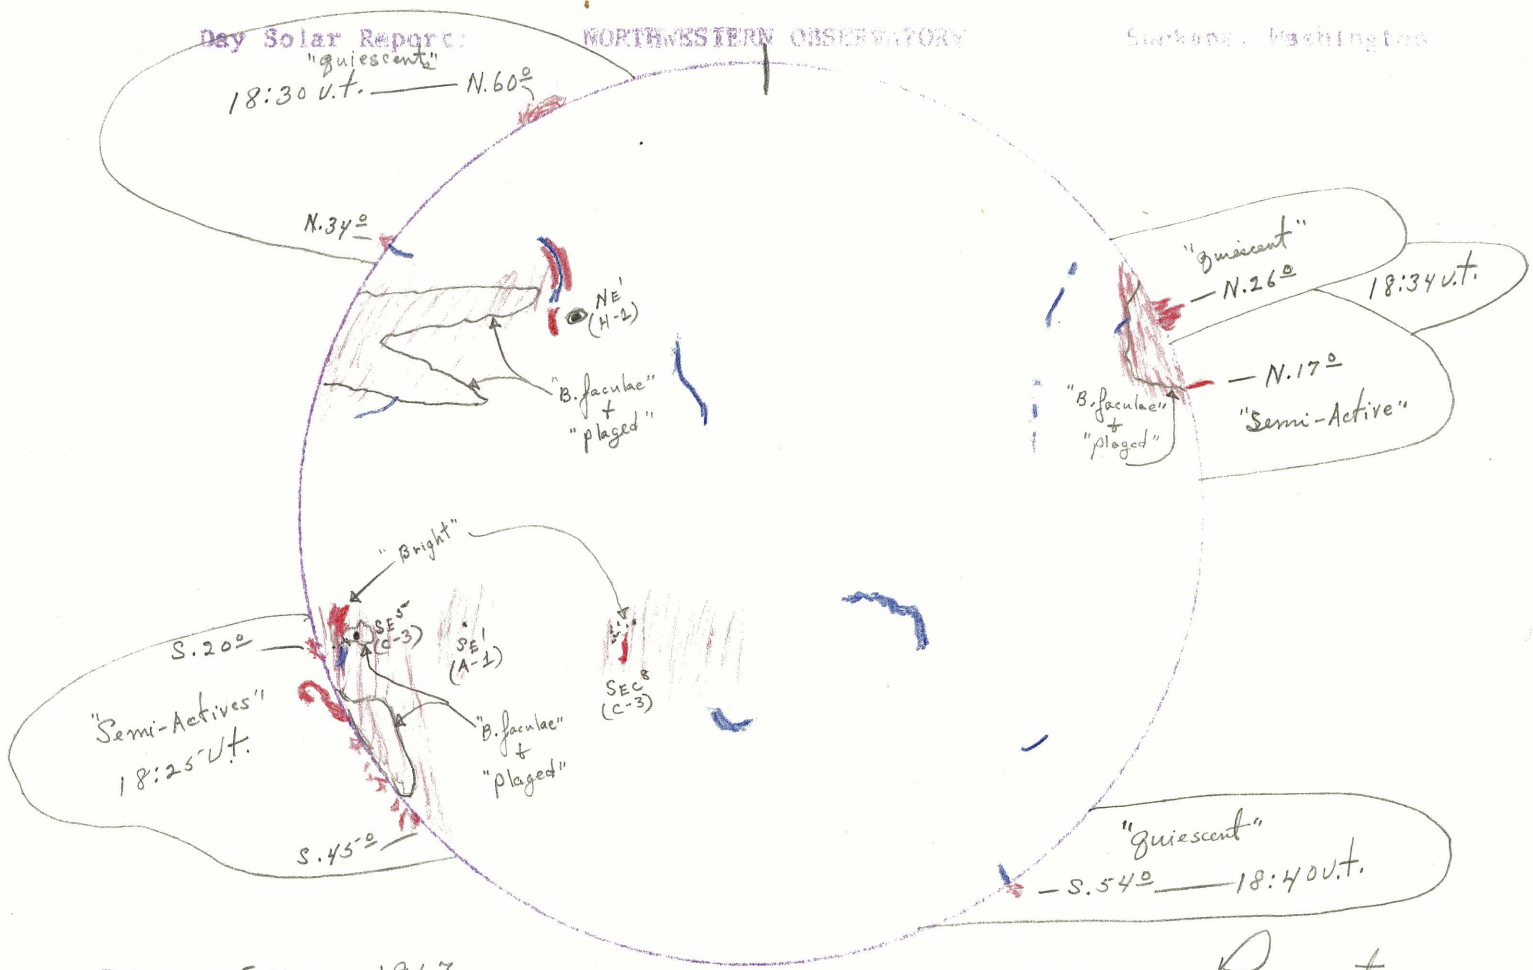 Day Solar Report: NORTHWESTERN OBSERVATORY Spokane, Washington
"quiescent"
18:30 U.t. — N.60º
N.34º
NE¹
(H-1)
"B. faculae"
+
"plaged"
"quiescent"
N.26º
18:34 U.t.
N.17º
"Semi-Active"
"B. faculae"
+
"plaged"
"Bright"
SE⁵
(C-3)
SE¹
(A-1)
SEC⁸
(C-3)
S.20º
"Semi-Actives"
18:25 U.t.
"B. faculae"
+
"plaged"
S.45º
"quiescent"
S.54º — 18:40 U.t.